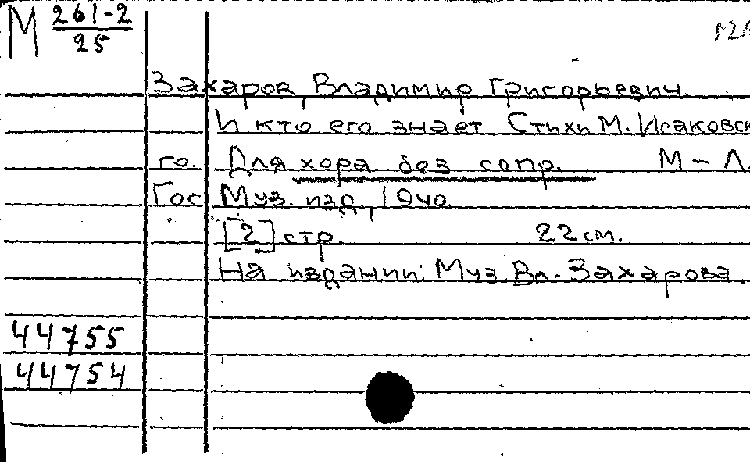 М 261-2
25
Захаров, Владимир Григорьевич
И кто его знает Стихи М. Исаковско
го. Для хора без сопр. М – Л.
Гос Муз. изд, 1940
[2] стр. 22 см.
На издании: Муз. Вл. Захарова.
44755
44754